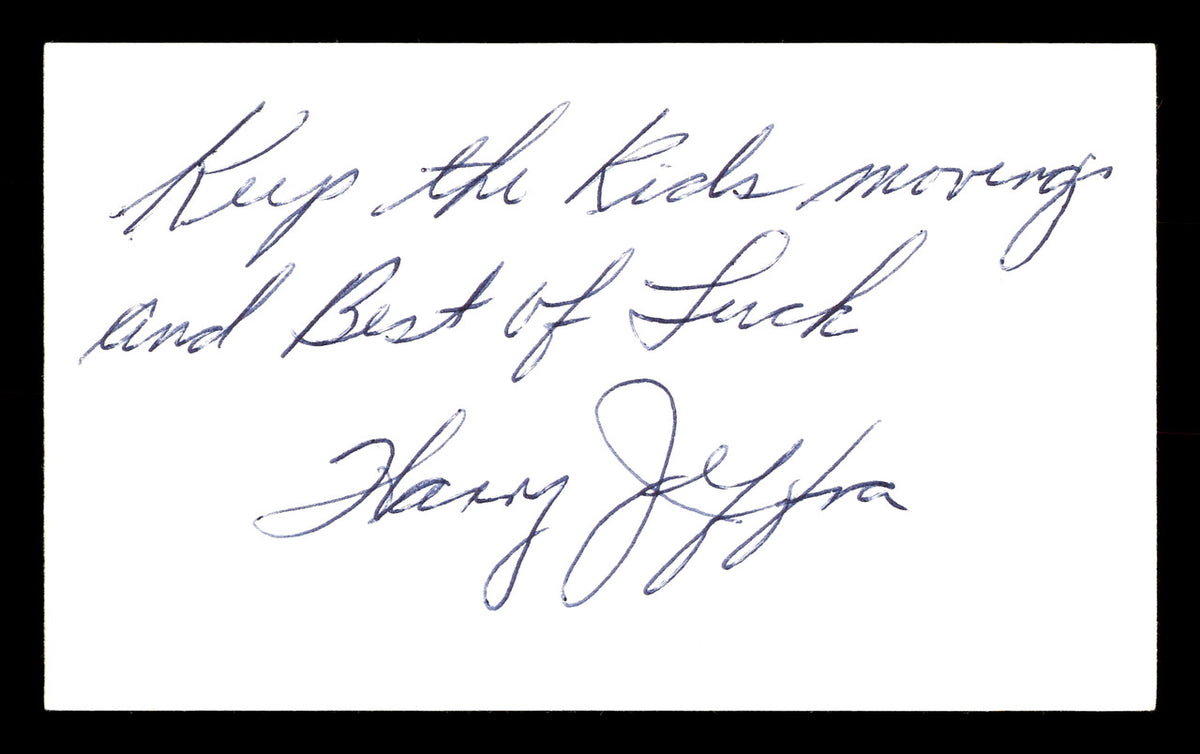 Keep the Kids moving
and Best of Luck
Harry Jeffra